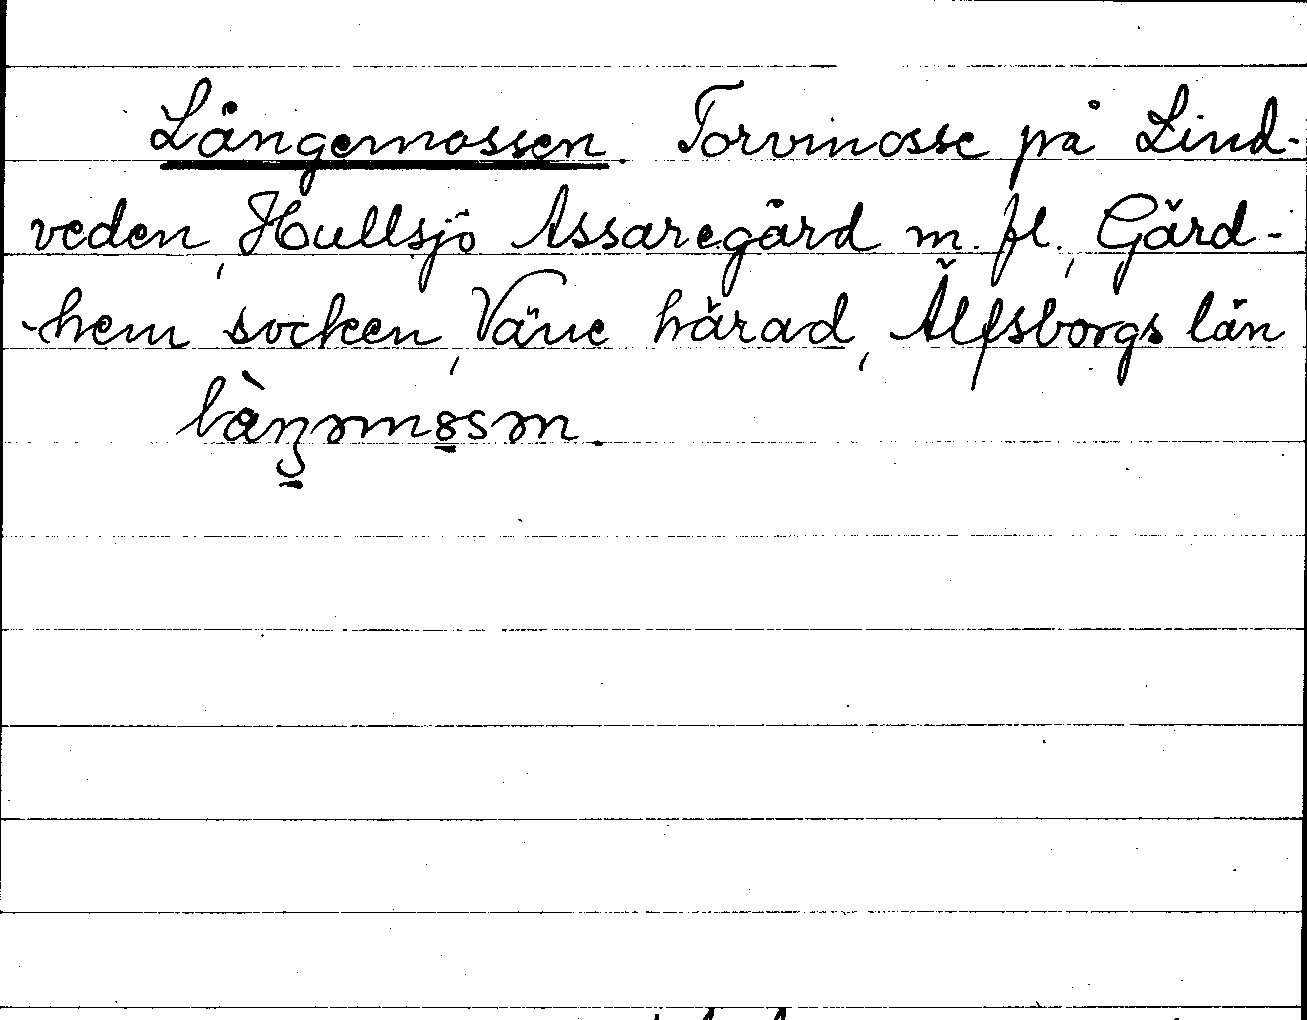 Långemossen. Torvmosse på Lind-
veden, Hullsjö Assaregård m. fl., Gärd-
-hem socken, Väne härad, Älfsborgs län